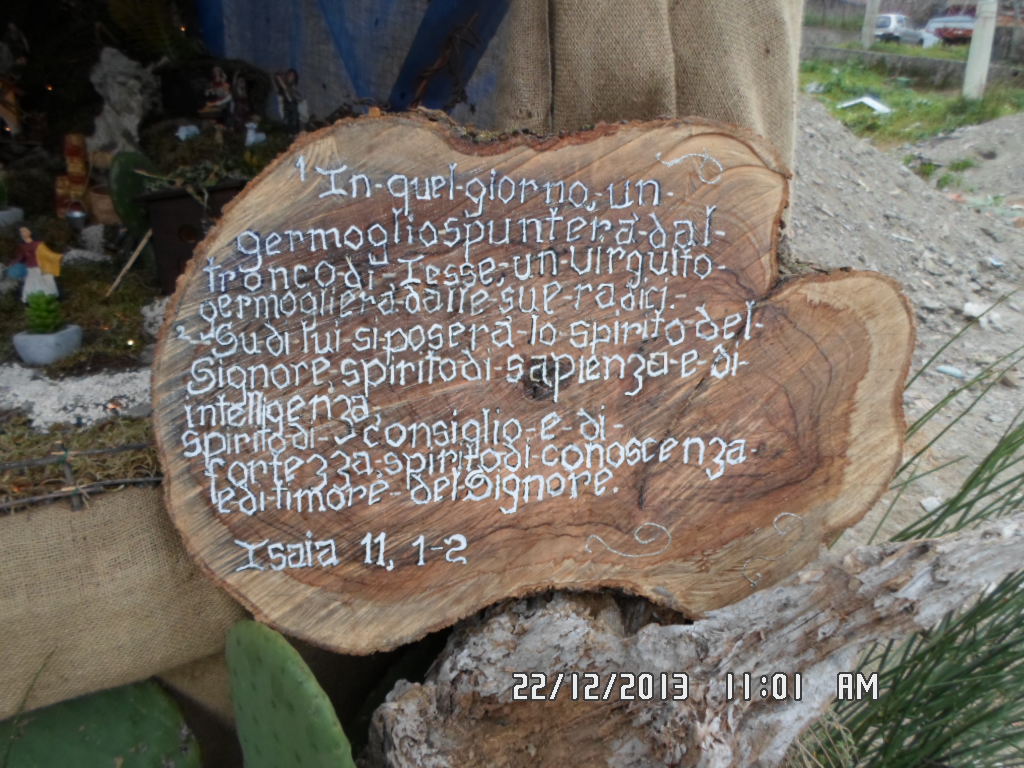 1 In-quel-giorno,-un-
germogliospunterà-dal-
troncodi-Iesse,-un-virgulto-
germoglierà-dalle-sue-radici.-
2-Sudi lui si-poserà-lo-spirito del-
Signore, spiritodi-sapienza-e-di-
intelligenza,
spiritodi-consiglio-e-di-
fortezza,-spiritodi-conoscenza-
edi-timore--del-Signore.
Isaia 11, 1-2
22/12/2013 11:01 AM